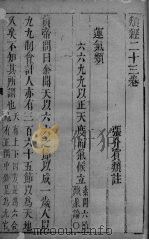 類經二十三卷
張介賓類註
運氣類
六六九九以正天度而歲氣立
黃帝問曰余聞天以六六之節以成一歲人以
九九制會計人亦有三百六十五節以為天地
久矣不知其所謂也